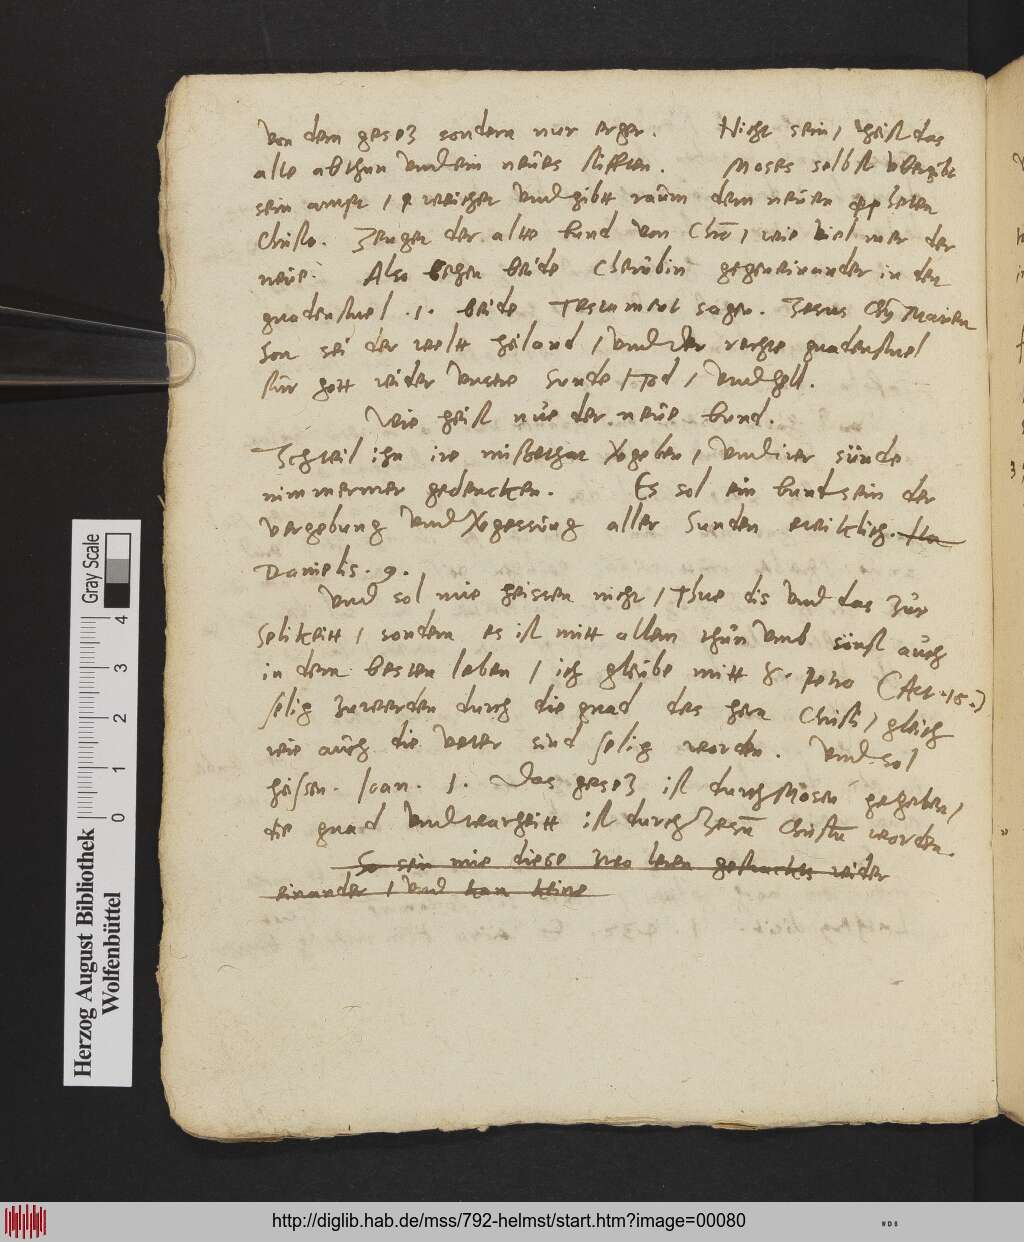 von dem gesetz sondern nur erger. Nicht sein, heist das
alte abthun und ein neües stifften. Moses selbst ubergibt
sein ampt, weichet und gibtt raüm dem neüen
Christo. Zeugen der alte bund von Chro, wie viel mer der
neüe. Also sehen beide Cherübin gegeneinander in den
gnadenstuel .1. beide Testament sagen. Jesus Marien
Son sei der weltt heiland, und der rechte gnadenstuel
für gott wider unsere Sunde, Tod, und hell.
Wie heist nüe der neüe bund.
Ich weil ihn ire missethat vergeben, und irer sünde
nimmermer gedencken. Es sol ein bund sein der
vergebung und vergessüng aller Sunden ewiklich.
Danielis. 9.
Und sol nüe heissen nicht, Thue dis und das zür
selikeitt, sondern es ist mitt allem thün umb sünst aüch
in dem besten leben, ich gleübe mitt S. Petro (Act. 15.)
selig zuwerden durch die gnad des hern Christi, gleich
wie aüch die veter sind selig worden. Und sol
heissen. Joan. 1. Das gesetz ist durch Mosen gegeben,
die gnad und warheitt ist durch Jesü Christü worden.
So sein nüe diese zwo leren gestrackes wider
einander, und kan keine
Herzog August Bibliothek
Wolfenbüttel
Gray Scale
0 1 2 3 4
http://diglib.hab.de/mss/792-helmst/start.htm?image=00080